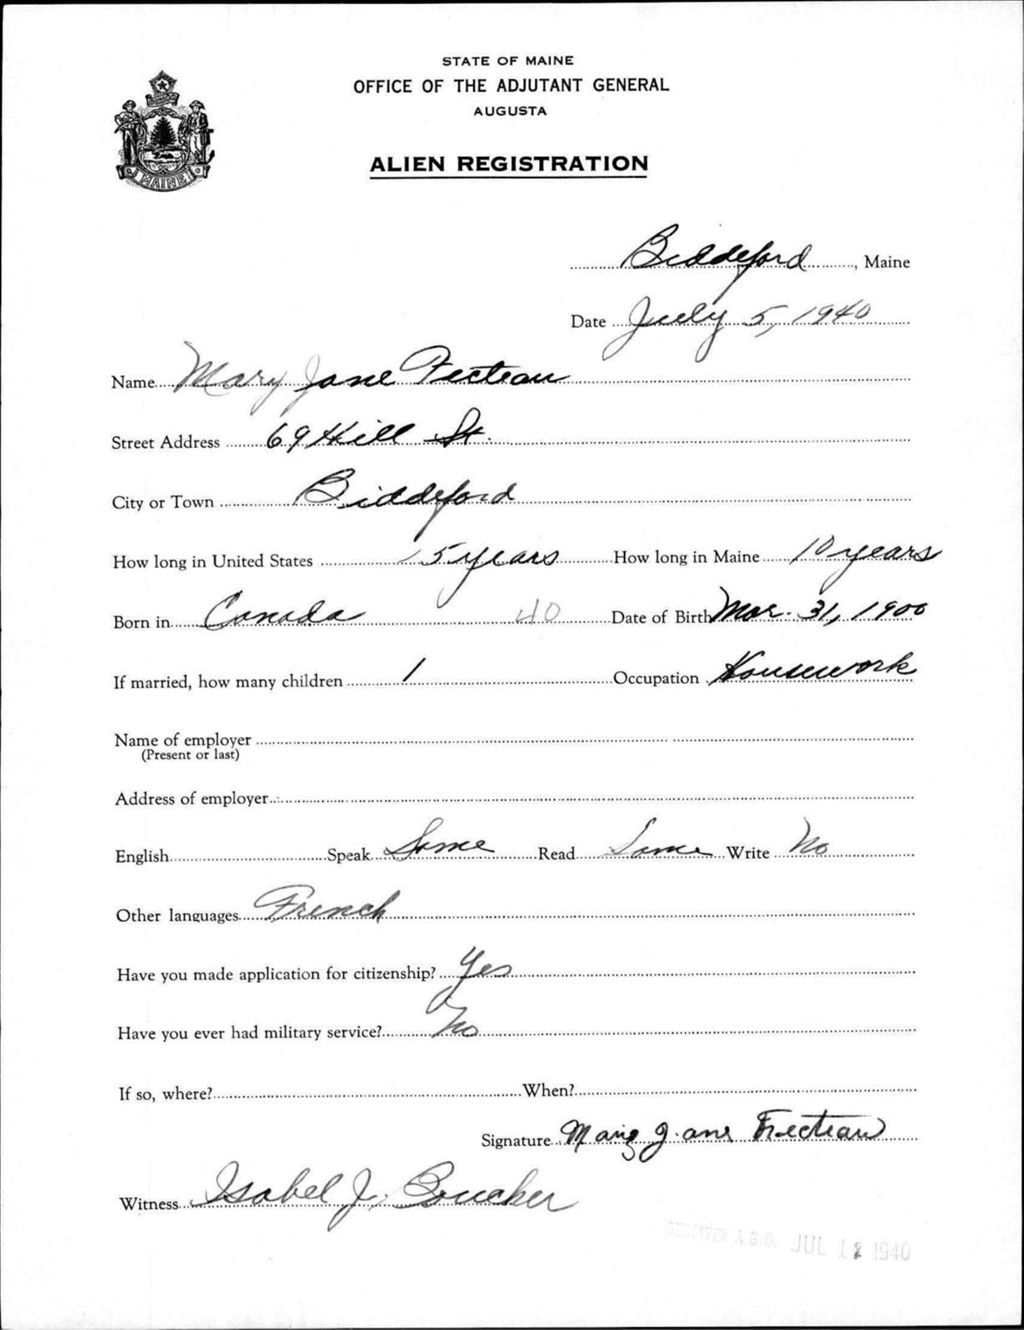 STATE OF MAINE
OFFICE OF THE ADJUTANT GENERAL
AUGUSTA
MAINE
ALIEN REGISTRATION
Biddeford, Maine
Date July 5, 1940
Name Mary Jane Fecteau
Street Address 69 Hill St.
City or Town Biddeford
How long in United States 15 years How long in Maine 10 years
Born in Canada 40 Date of Birth Mar. 31, 1900
If married, how many children 1 Occupation Housework
Name of employer
(Present or last)
Address of employer
English Speak Some Read Some Write No
Other languages French
Have you made application for citizenship? Yes
Have you ever had military service? No
If so, where? When?
Signature Mary Jane Fecteau
Witness Isabel J. Boucher
RECEIVED A.G.O. JUL 12 1940